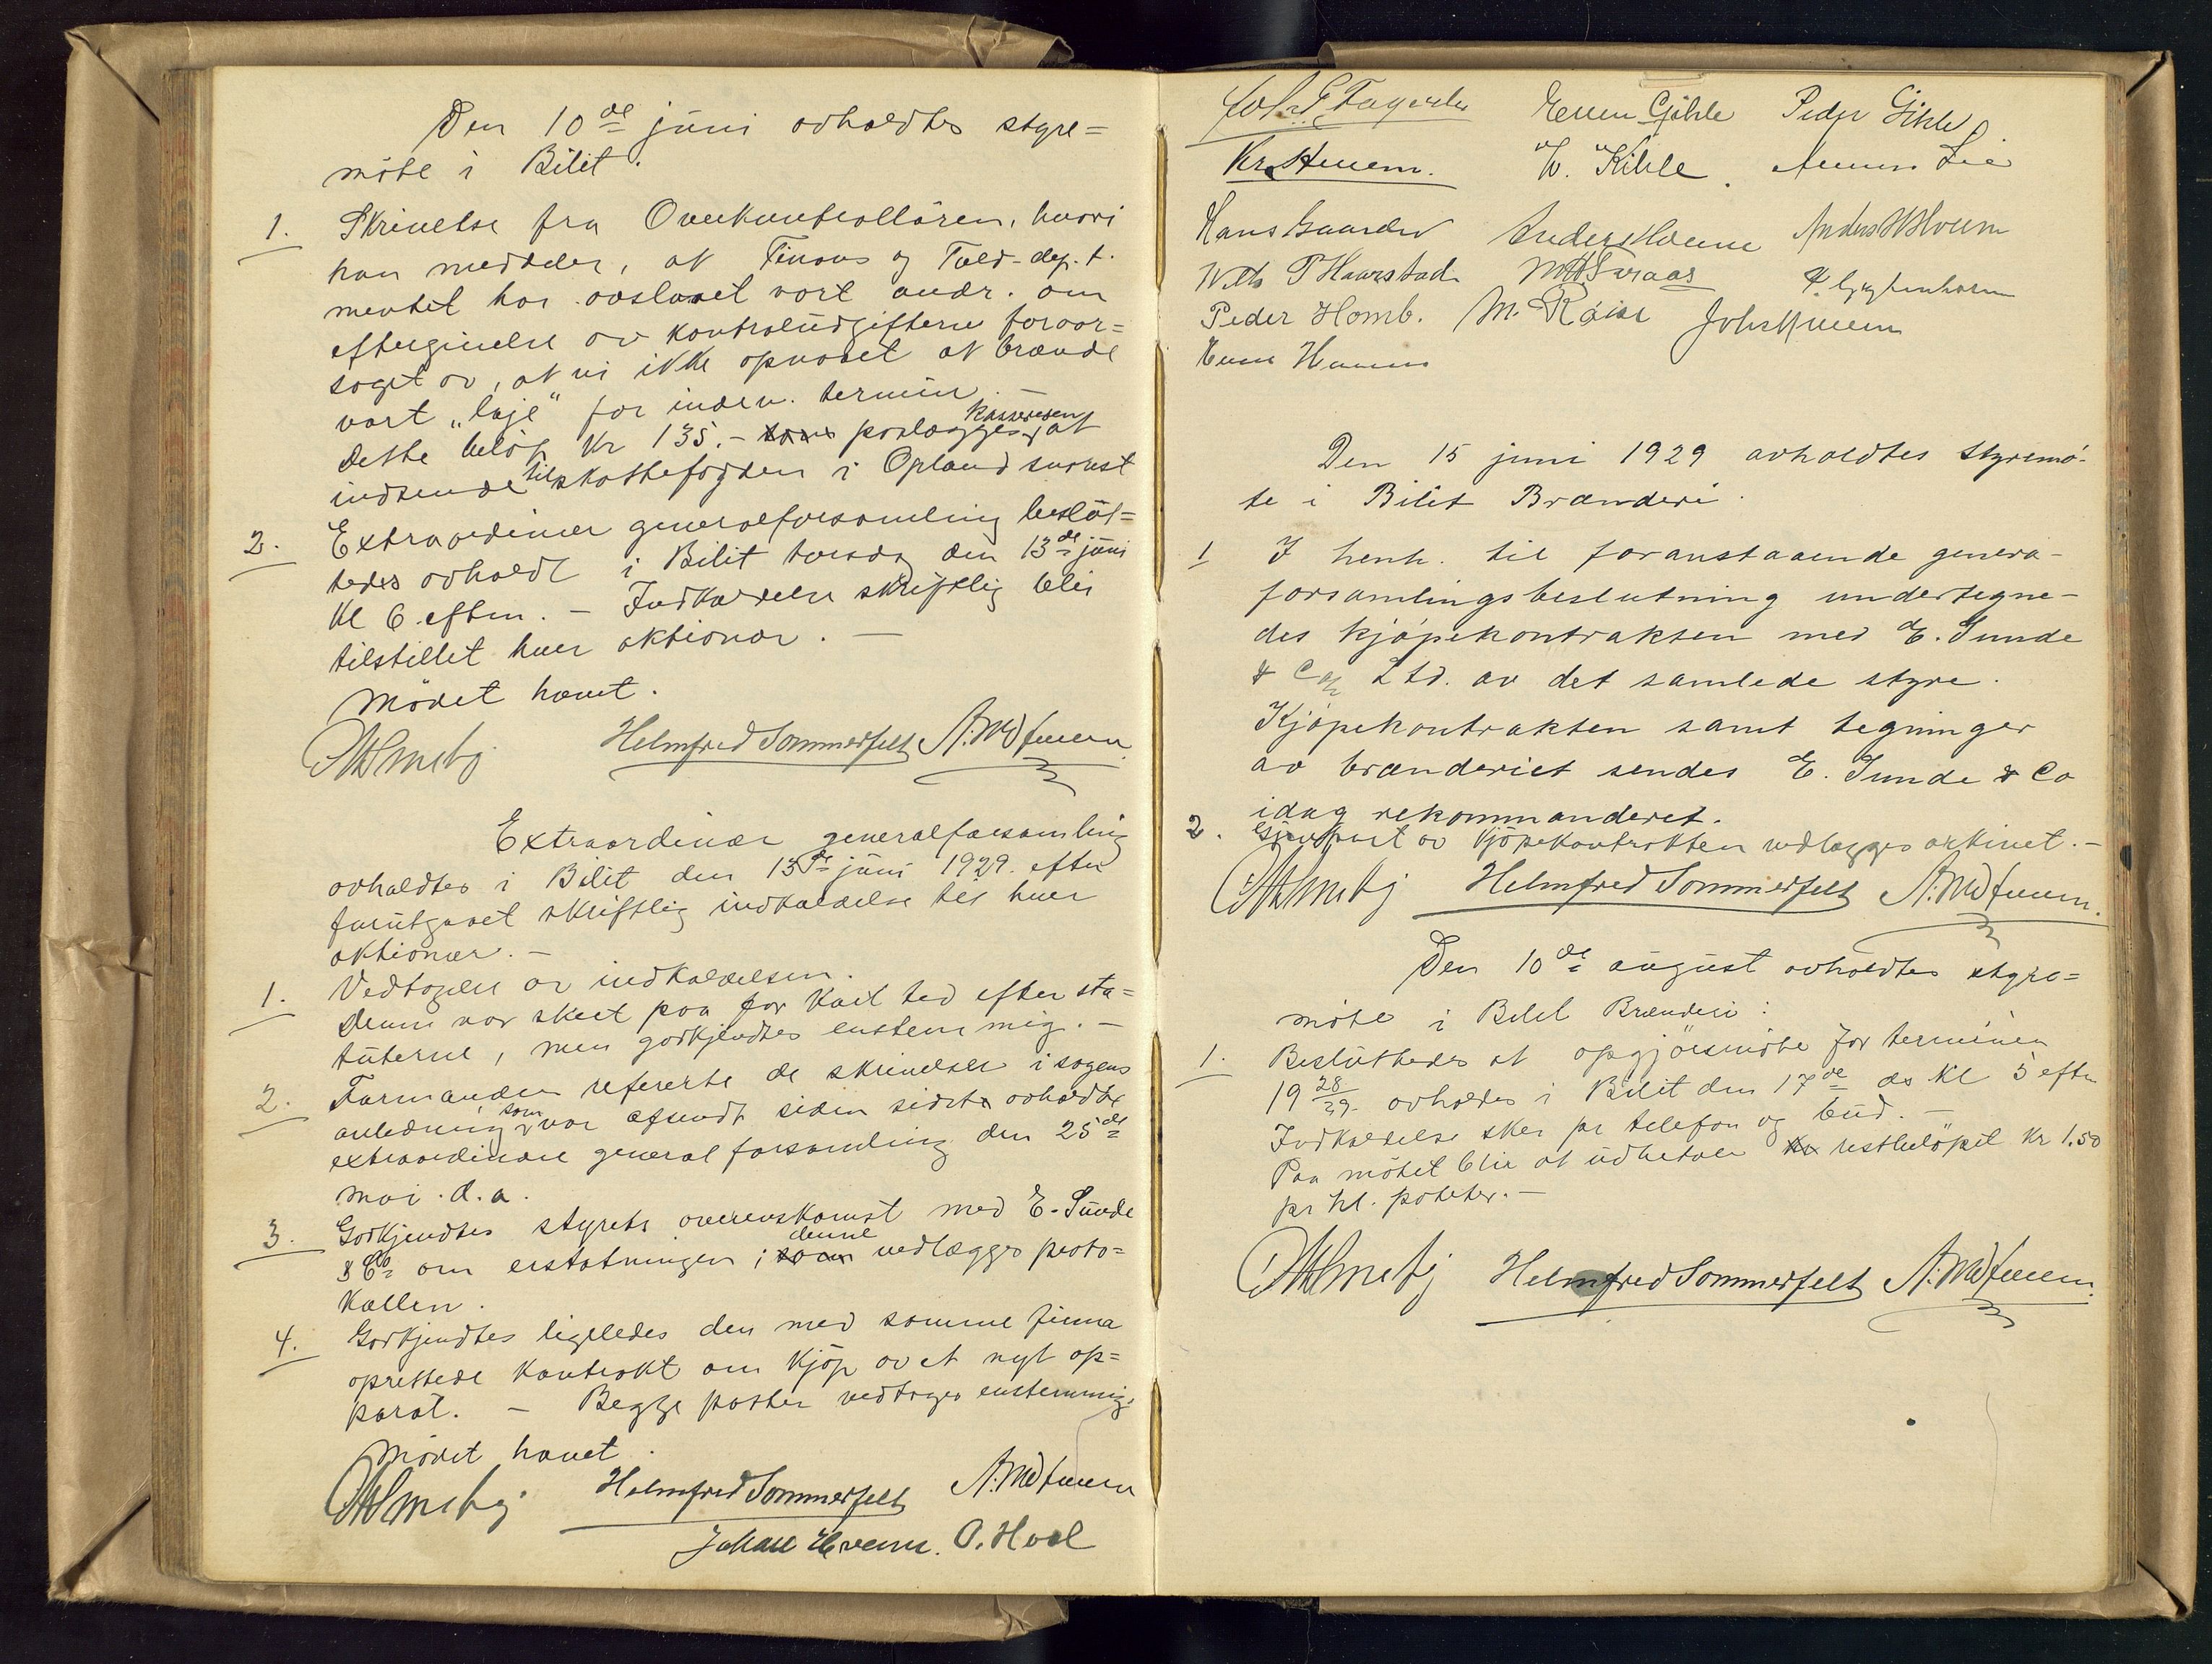 Den 10de juni avholdtes styre=
möte i Bilit.
1. Skrivelse fra Overkontrollören, hvori
han meddeler, at Finans og Told-dep.t.
mentet har avslaaet vort andr. om
eftergivelse av kontroludgifterne foraar=
saget av, at vi ikke opnaaet at brænde
vort "laje" for inden. termin. —
Dette belöp kr 135.- paalægges kassereren at
indsende til skattefogden i Opland snarest
2. Extraordinær generalforsamling beslöt=
tedes avholdt i Bilit torsdag den 13de juni
kl 6 eftm. — Indkaldelse skriftlig blir
tilstillet hver aktionær. —
Mödet hævet.
Helmfred Sommerfelt
Extraordinær generalforsamling
avholdtes i Bilit den 13de juni 1929. efter
forutgaaet skriftlig indkaldelse til hver
aktionær. —
1. Vedtagelse av indkaldelsen.
Denne var skeet paa for kort tid efter sta=
tuterne, men godkjendtes enstemmig. —
2. Formanden refererte de skrivelser i sagens
anledning som var afsendt siden sidste avholdte
extraordinære generalforsamling den 25de
mai. d.a.
3. Godkjendtes styrets overenskomst med E. Sunde
& Co om erstatningen; denne vedlægges proto=
kollen.
4. Godkjendtes ligeledes den med samme firma
oprettede kontrakt om kjöp av et nyt ap=
parat. — Begge poster vedtoges enstemmig.
Mödet hævet.
Helmfred Sommerfelt
Johan Hveem. O. Hoel
Even Gihle Peder Gihle
Kr. Hveem. W. Kihle. Lie
Hans Gaarder Anders Hveem Anders Hveem
P Haarstad
Peder Homb. M. Röise Johs Hveem
Den 15 juni 1929 avholdtes styremö-
te i Bilit Brænderi.
1 I henh. til foranstaaende genera-
forsamlingsbeslutning undertegne-
des kjöpekontrakten med E. Sunde
& Co Ltd. av det samlede styre.
Kjöpekontrakten samt tegninger
av brænderiet sendes E. Sunde & Co
idag rekommanderet.
2. Gjenpart av kjöpekontrakten vedlægges arkivet. —
Helmfred Sommerfelt
Den 10de august avholdtes styre=
möte i Bilit Brænderi:
1. Besluttedes at opgjörsmöte for terminen
1928/29 avholdes i Bilit den 17de ds kl 5 eftm
Indkaldelse sker pr telefon og bud. —
Paa mötet blir at udbetale restbelöpet kr 1.50
pr hl. poteter. —
Helmfred Sommerfelt